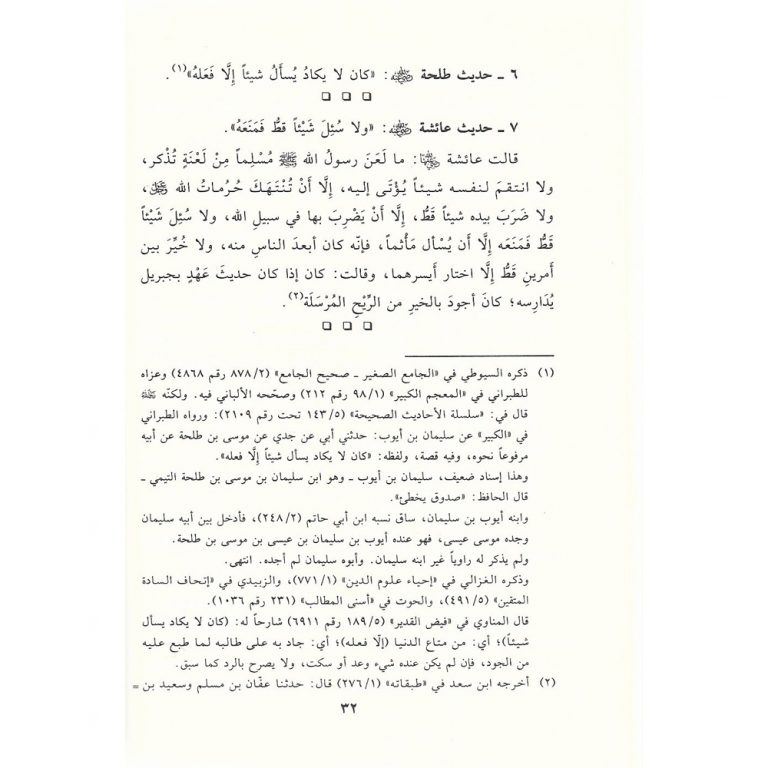 ٦ ـ حديث طلحة رضي الله عنه: «كان لا يكادُ يُسأَلُ شيئاً إِلَّا فَعَلهُ»(١).
٧ ـ حديث عائشة رضي الله عنها: «ولا سُئِلَ شَيْئاً قطُّ فَمَنَعَهُ».
قالت عائشة رضي الله عنها: ما لَعَن رسولُ الله ﷺ مُسْلِماً مِنْ لَعْنَةٍ تُذْكر،
ولا انتقمَ لنفسه شيئاً يُؤتَى إليه، إِلَّا أَنْ تُنْتَهَكَ حُرُماتُ الله ﷻ،
ولا ضَرَبَ بيده شيئاً قَطُّ، إِلَّا أَنْ يَضْرِبَ بها في سبيلِ الله، ولا سُئِلَ شَيْئاً
قَطُّ فَمَنَعَه إِلَّا أَن يُسْأل مَأْثماً، فإنّه كان أبعدَ الناسِ منه، ولا خُيِّرَ بين
أَمرينِ قَطُّ إِلَّا اختار أَيسرهما، وقالت: كان إذا كان حديثَ عَهْدٍ بجبريل
يُدَارِسه؛ كانَ أجودَ بالخيرِ من الرِّيْحِ المُرْسَلَة(٢).
(١) ذكره السيوطي في «الجامع الصغير ـ صحيح الجامع» (٨٧٨/٢ رقم ٤٨٦٨) وعزاه
للطبراني في «المعجم الكبير» (٩٨/١ رقم ٢١٢) وصحّحه الألباني فيه. ولكنّه رحمه الله
قال في: «سلسلة الأحاديث الصحيحة» (١٤٣/٥ تحت رقم ٢١٠٩): ورواه الطبراني
في «الكبير» عن سليمان بن أيوب: حدثني أبي عن جدي عن موسى بن طلحة عن أبيه
مرفوعاً نحوه، وفيه قصة، ولفظه: «كان لا يكاد يسأل شيئاً إلَّا فعله».
وهذا إسناد ضعيف، سليمان بن أيوب ـ وهو ابن سليمان بن موسى بن طلحة التيمي ـ
قال الحافظ: «صدوق يخطئ».
وابنه أيوب بن سليمان، ساق نسبه ابن أبي حاتم (٢٤٨/٢)، فأدخل بين أبيه سليمان
وجده موسى عيسى، فهو عنده أيوب بن سليمان بن عيسى بن موسى بن طلحة.
ولم يذكر له راوياً غير ابنه سليمان. وأبوه سليمان لم أجده. انتهى.
وذكره الغزالي في «إحياء علوم الدين» (٧٧١/١)، والزبيدي في «إتحاف السادة
المتقين» (٤٩١/٥)، والحوت في «أسنى المطالب» (٢٣١ رقم ١٠٣٦).
قال المناوي في «فيض القدير» (١٨٩/٥ رقم ٦٩١١) شارحاً له: (كان لا يكاد يسأل
شيئاً)؛ أي: من متاع الدنيا (إلّا فعله)؛ أي: جاد به على طالبه لما طبع عليه
من الجود، فإن لم يكن عنده شيء وعد أو سكت، ولا يصرح بالرد كما سبق.
(٢) أخرجه ابن سعد في «طبقاته» (٢٧٦/١) قال: حدثنا عفّان بن مسلم وسعيد بن =
٣٢